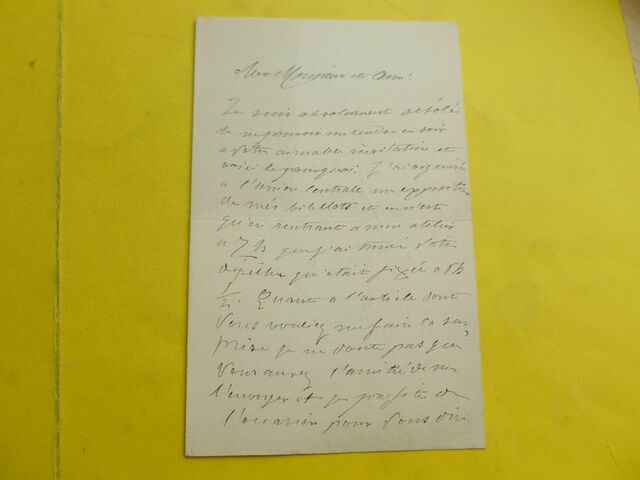 Mon Monsieur et Ami
Je suis absolument désolé
de ne pouvoir me rendre ce soir
a votre aimable invitation et
voici le pourquoi. J'ai organisé
a l'Union Centrale une exposition
de mes bibelots et ce n'est
qu'en rentrant a mon atelier
a 7h que j'ai trouvé votre
dépêche qui était fixée a 6h
1/2. Quant a l'article dont
vous vouliez me faire la sur
prise je ne doute pas que
vous aurez l'amitié de me
l'envoyer et je profite de
l'occasion pour vous dire